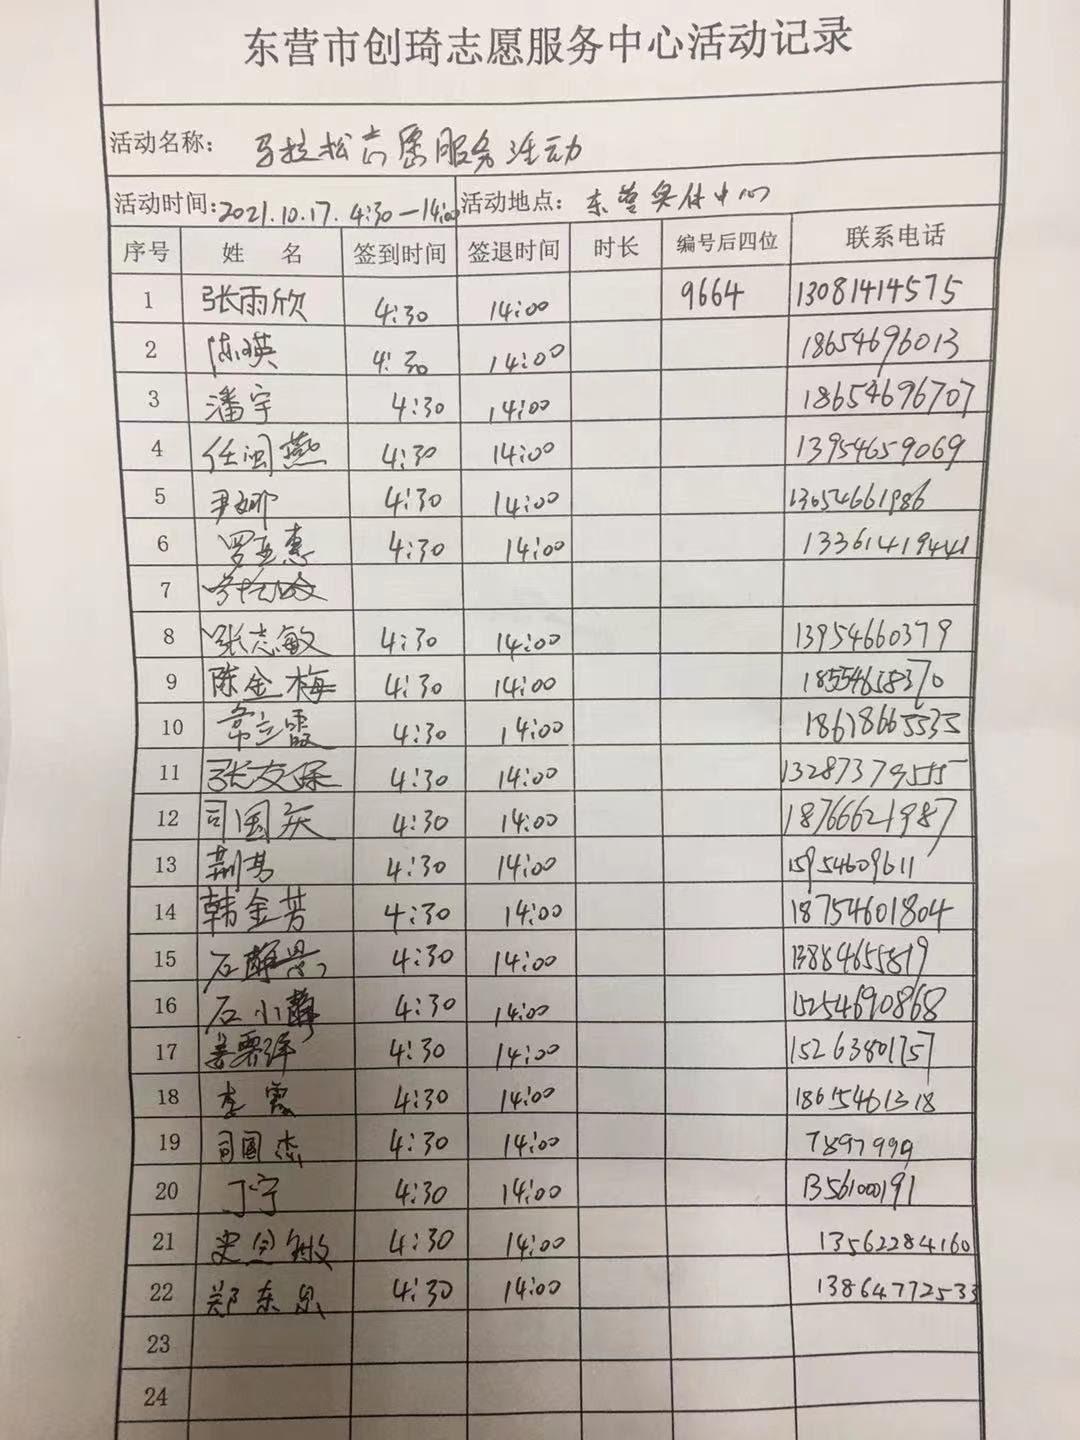 东营市创琦志愿服务中心活动记录
活动名称： 马拉松志愿服务活动
活动时间：2021.10.17. 4:30—14:00 活动地点： 东营奥体中心
序号 姓 名 签到时间 签退时间 时长 编号后四位 联系电话
1 张雨欣 4:30 14:00 9664 13081414575
2 陈瑛 4:30 14:00 18654696013
3 潘宇 4:30 14:00 18654696707
4 任闽燕 4:30 14:00 13954659069
5 尹娜 4:30 14:00 13054661986
6 罗亚惠 4:30 14:00 13361419441
7
8 张志敏 4:30 14:00 13954660379
9 陈金梅 4:30 14:00 18554658370
10 常立霞 4:30 14:00 18678665535
11 张友保 4:30 14:00 13287379555
12 司国庆 4:30 14:00 18766621987
13 荆芳 4:30 14:00 15954609611
14 韩金芳 4:30 14:00 18754601804
15 石静 4:30 14:00 13884655819
16 石小静 4:30 14:00 15254690868
17 姜 4:30 14:00 15263801757
18 李霞 4:30 14:00 18615461318
19 司国杰 4:30 14:00 7897999
20 丁宁 4:30 14:00 13561000191
21 史 敏 4:30 14:00 13562284160
22 郑东 4:30 14:00 13864772533
23
24